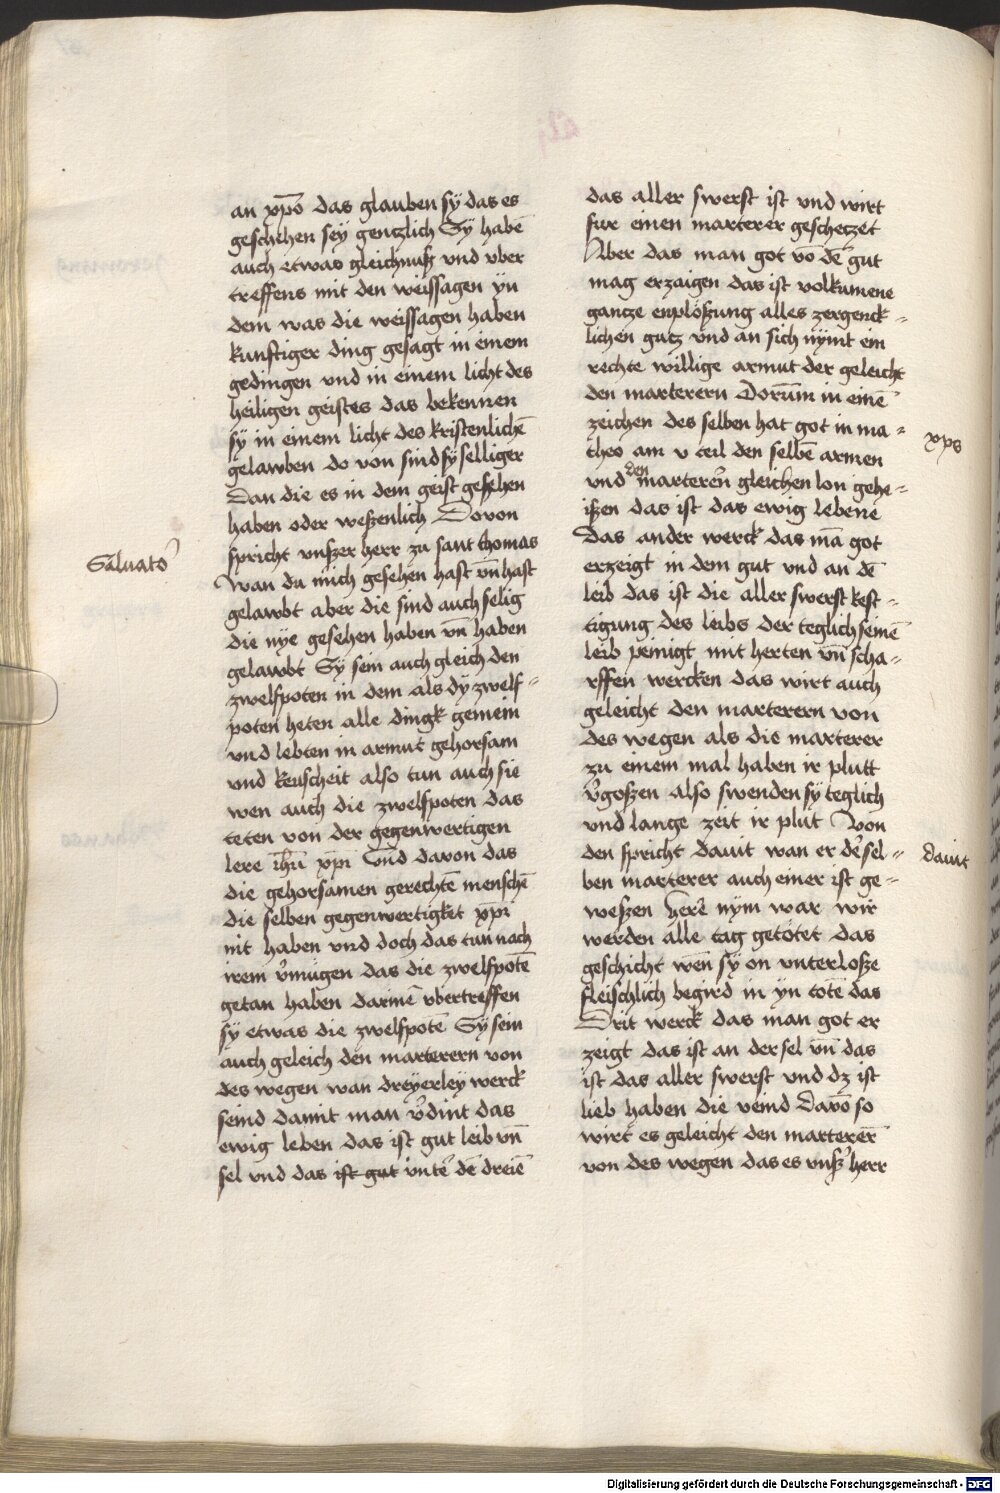 an xp̄o das glauben sÿ das es
geschehen seÿ gentzlich Sÿ habē
auch etwas gleichnusz vnd vber
treffens mit den weissagen yn
dem was die weissagen haben
kunftiger ding gesagt in einem
gedingen vnd in einem licht des
heiligen geistes das bekennen
sy in einem licht des kristenlichē
gelawben do von sind sÿ selliger
Dan die es in dem geist gesehen
haben oder weszenlich Dovon
spricht vnszer herr zu sant thomas
Salvato᷒
Wan du mich gesehen hast vn̄ hast
gelawbt aber die sind auch selig
die nÿe gesehen haben vn̄ haben
gelawbt Sÿ sein auch gleich den
zwelfpoten in dem als dÿ zwelf=
poten heten alle dingk gemein
vnd lebten in armut gehorsam
vnd keuscheit also tun auch sie
wen auch die zwelfpoten das
teten von der gegenwertigen
lere ih̄u xp̄i Vnd davon das
die gehorsamen gerechtē menschē
die selben gegenwertigket xp̄i
nit haben vnd doch das tun nach
irem v᷒mügen das die zwelfpotē
getan haben darinē vbertreffen
sÿ etwas die zwelfpotē Sÿ sein
auch geleich den marterern von
des wegen wan dreyerleÿ werck
seind damit man v᷒dint das
ewig leben das ist gut leib vn̄
sel vnd das ist gut vnte᷒ dē dreiē
das aller swerst ist vnd wirt
fur einen marterer geschetzet
Aber das man got vō dē gut
mag erzaigen das ist volkumene
gantze enplöszung alles zergenck=
lichen gutz vnd an sich nÿmt ein
rechte willige armut der geleicht
den marterern Dorūm in einē
zeichen des selben hat got in ma=
xp̄s
theo am v teil den selbē armen
vnd den marterer̄n gleichen lon gehe=
iszen das ist das ewig lebene
Das ander werck das mā got
erzeigt in dem gut vnd an dē
leib das ist die aller swerst kest=
tigung des leibs der teglich seinē
leib peinigt mit herten vn̄ scha=
rffen wercken das wirt auch
geleicht den marterern von
des wegen als die marterer
zu einem mal haben ir plutt
v᷒goszen also swenden sÿ teglich
vnd lange zeit ir plut Von
den spricht davit wan er de᷒ sel=
davit
ben marterer auch einer ist ge=
weszen here᷒ nÿm war wir
werden alle tag getötet das
geschicht wēn sÿ on vnterlosze
fleischlich begird in yn totē das
Drit werck das man got er
zeigt das ist an der sel vn̄ das
ist das aller swerst vnd dz ist
lieb haben die veind Davō so
wirt es geleicht den marterer̄
von des wegen das es vnsz᷒ herr
Digitalisierung gefördert durch die Deutsche Forschungsgemeinschaft - DFG